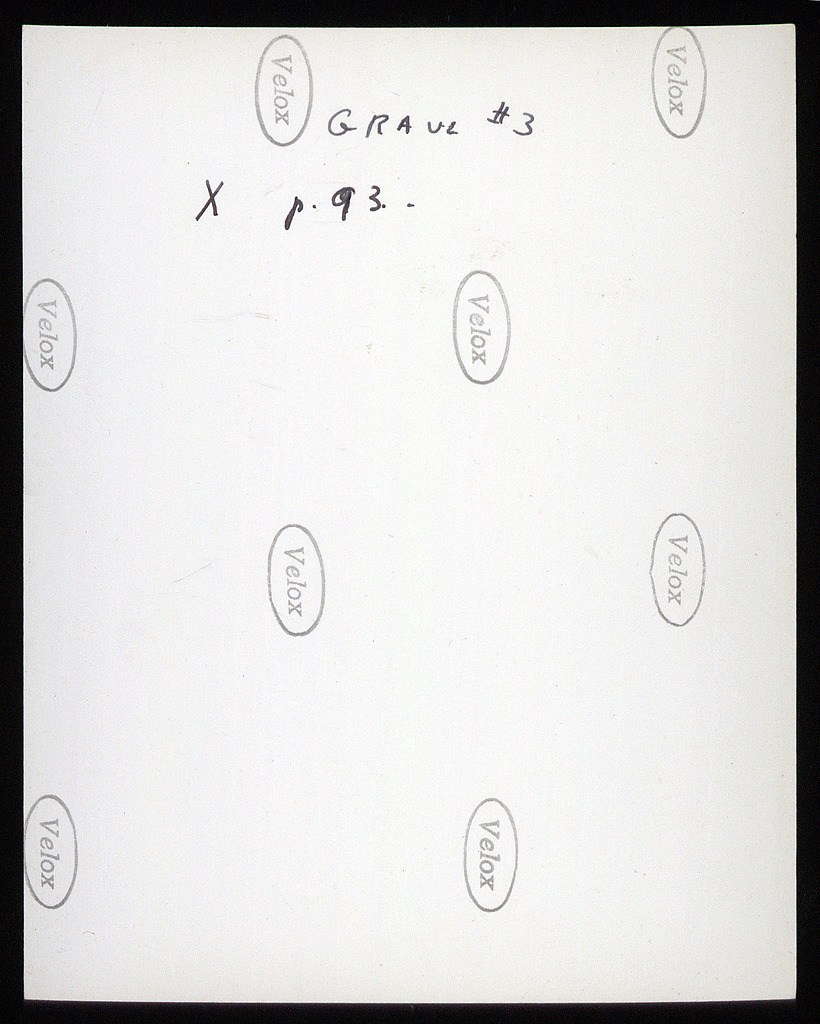 Velox
Velox
GRAVE #3
X p. 93. -
Velox
Velox
Velox
Velox
Velox
Velox